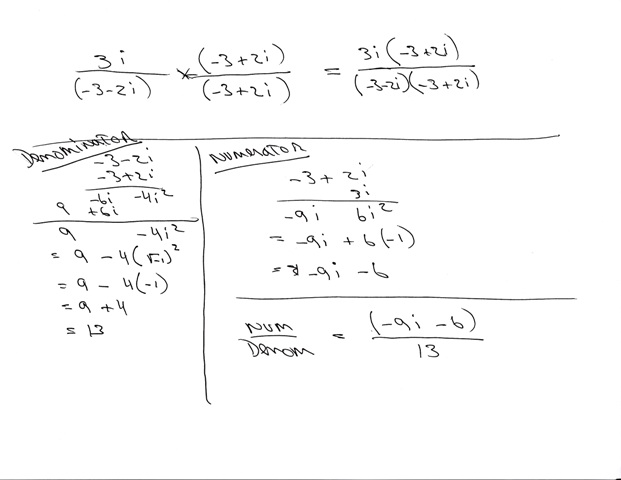 3i / (-3-2i) × (-3+2i) / (-3+2i) = 3i(-3+2i) / (-3-2i)(-3+2i)
Denominator
-3-2i
-3+2i
-6i -4i²
9 +6i
9 -4i²
= 9 - 4(√-1)²
= 9 - 4(-1)
= 9 + 4
= 13
Numerator
-3 + 2i
3i
-9i 6i²
= -9i + 6(-1)
= -9i - 6
Num / Denom = (-9i - 6) / 13